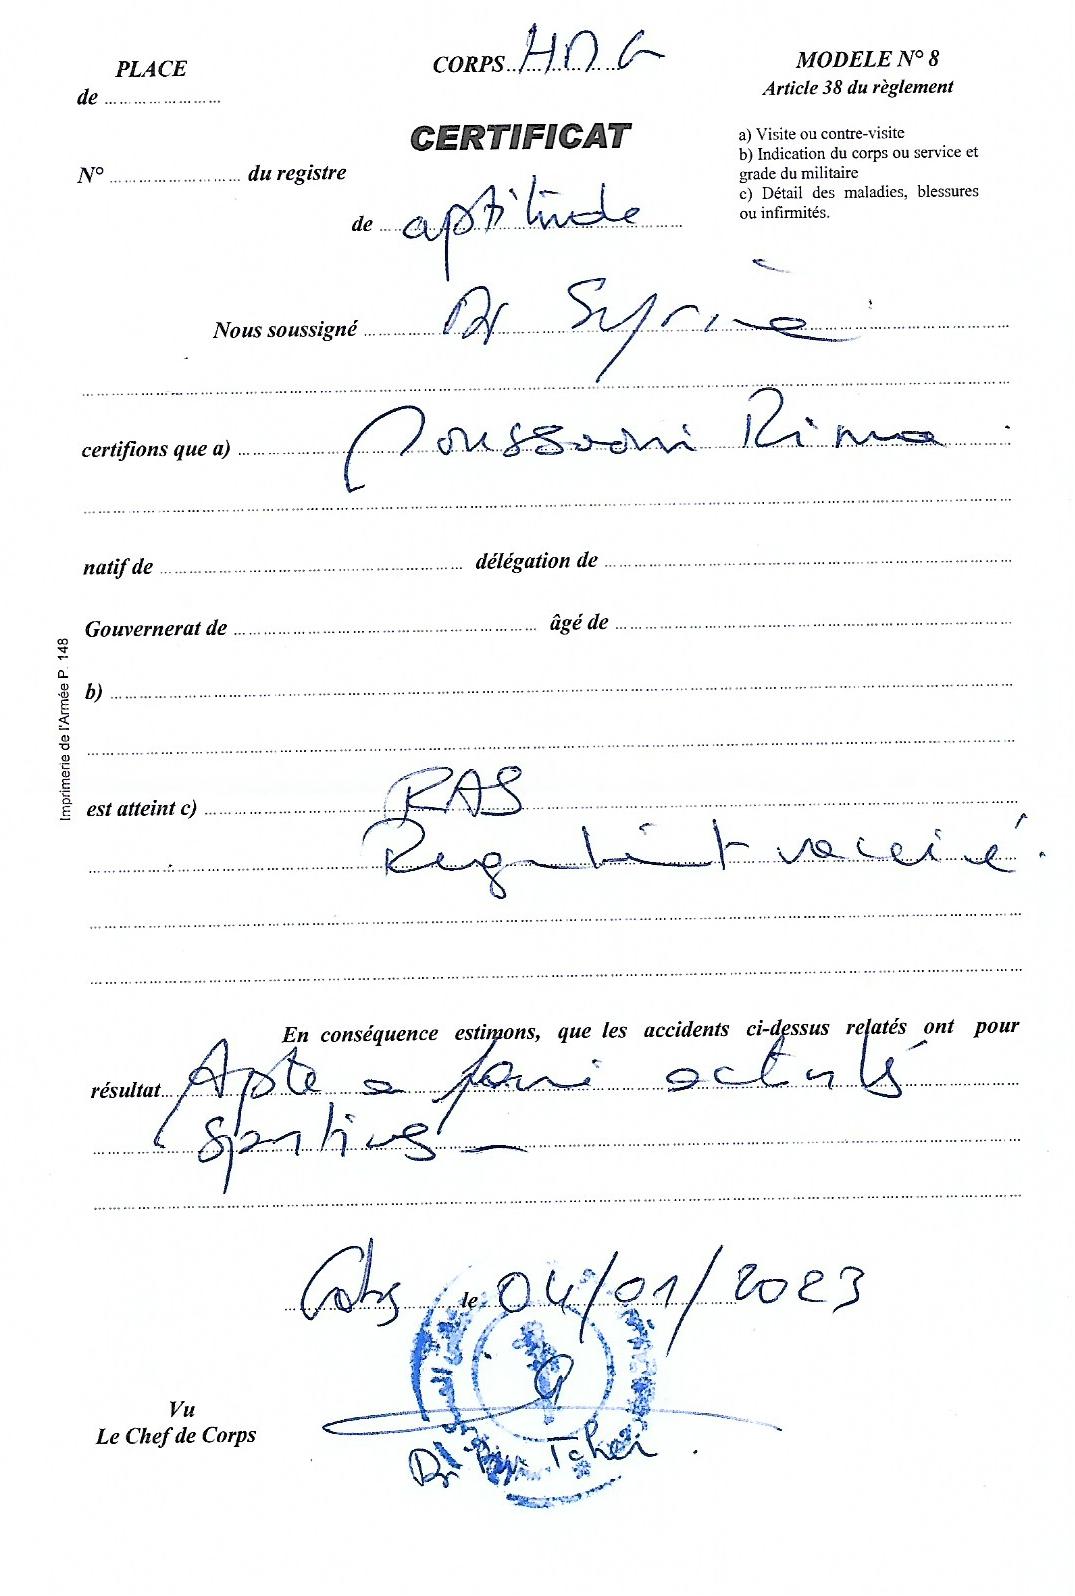 PLACE
CORPS
MODELE N° 8
de
Article 38 du règlement
CERTIFICAT
a) Visite ou contre-visite
b) Indication du corps ou service et
grade du militaire
c) Détail des maladies, blessures
ou infirmités.
N° du registre
de aptitude
Nous soussigné Dr
certifions que a) Rima
natif de délégation de
Gouvernerat de âgé de
b)
est atteint c) RAS
vacciné.
En conséquence estimons, que les accidents ci-dessus relatés ont pour
résultat Apte a faire activités
sportives
le 04/01/2023
Vu
Le Chef de Corps
Dr
Imprimerie de l'Armée P. 148